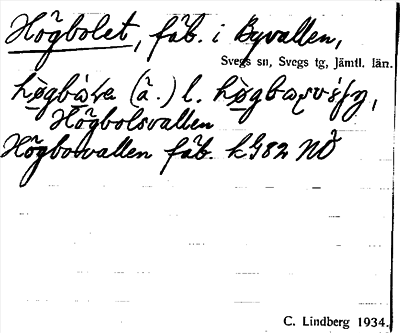 Högbolet, fäb. i Byvallen,
Svegs sn, Svegs tg, Jämtl. län.
(ä.) l.
Högbolsvallen
Högbovallen fäb. kG82 NÖ
C. Lindberg 1934.